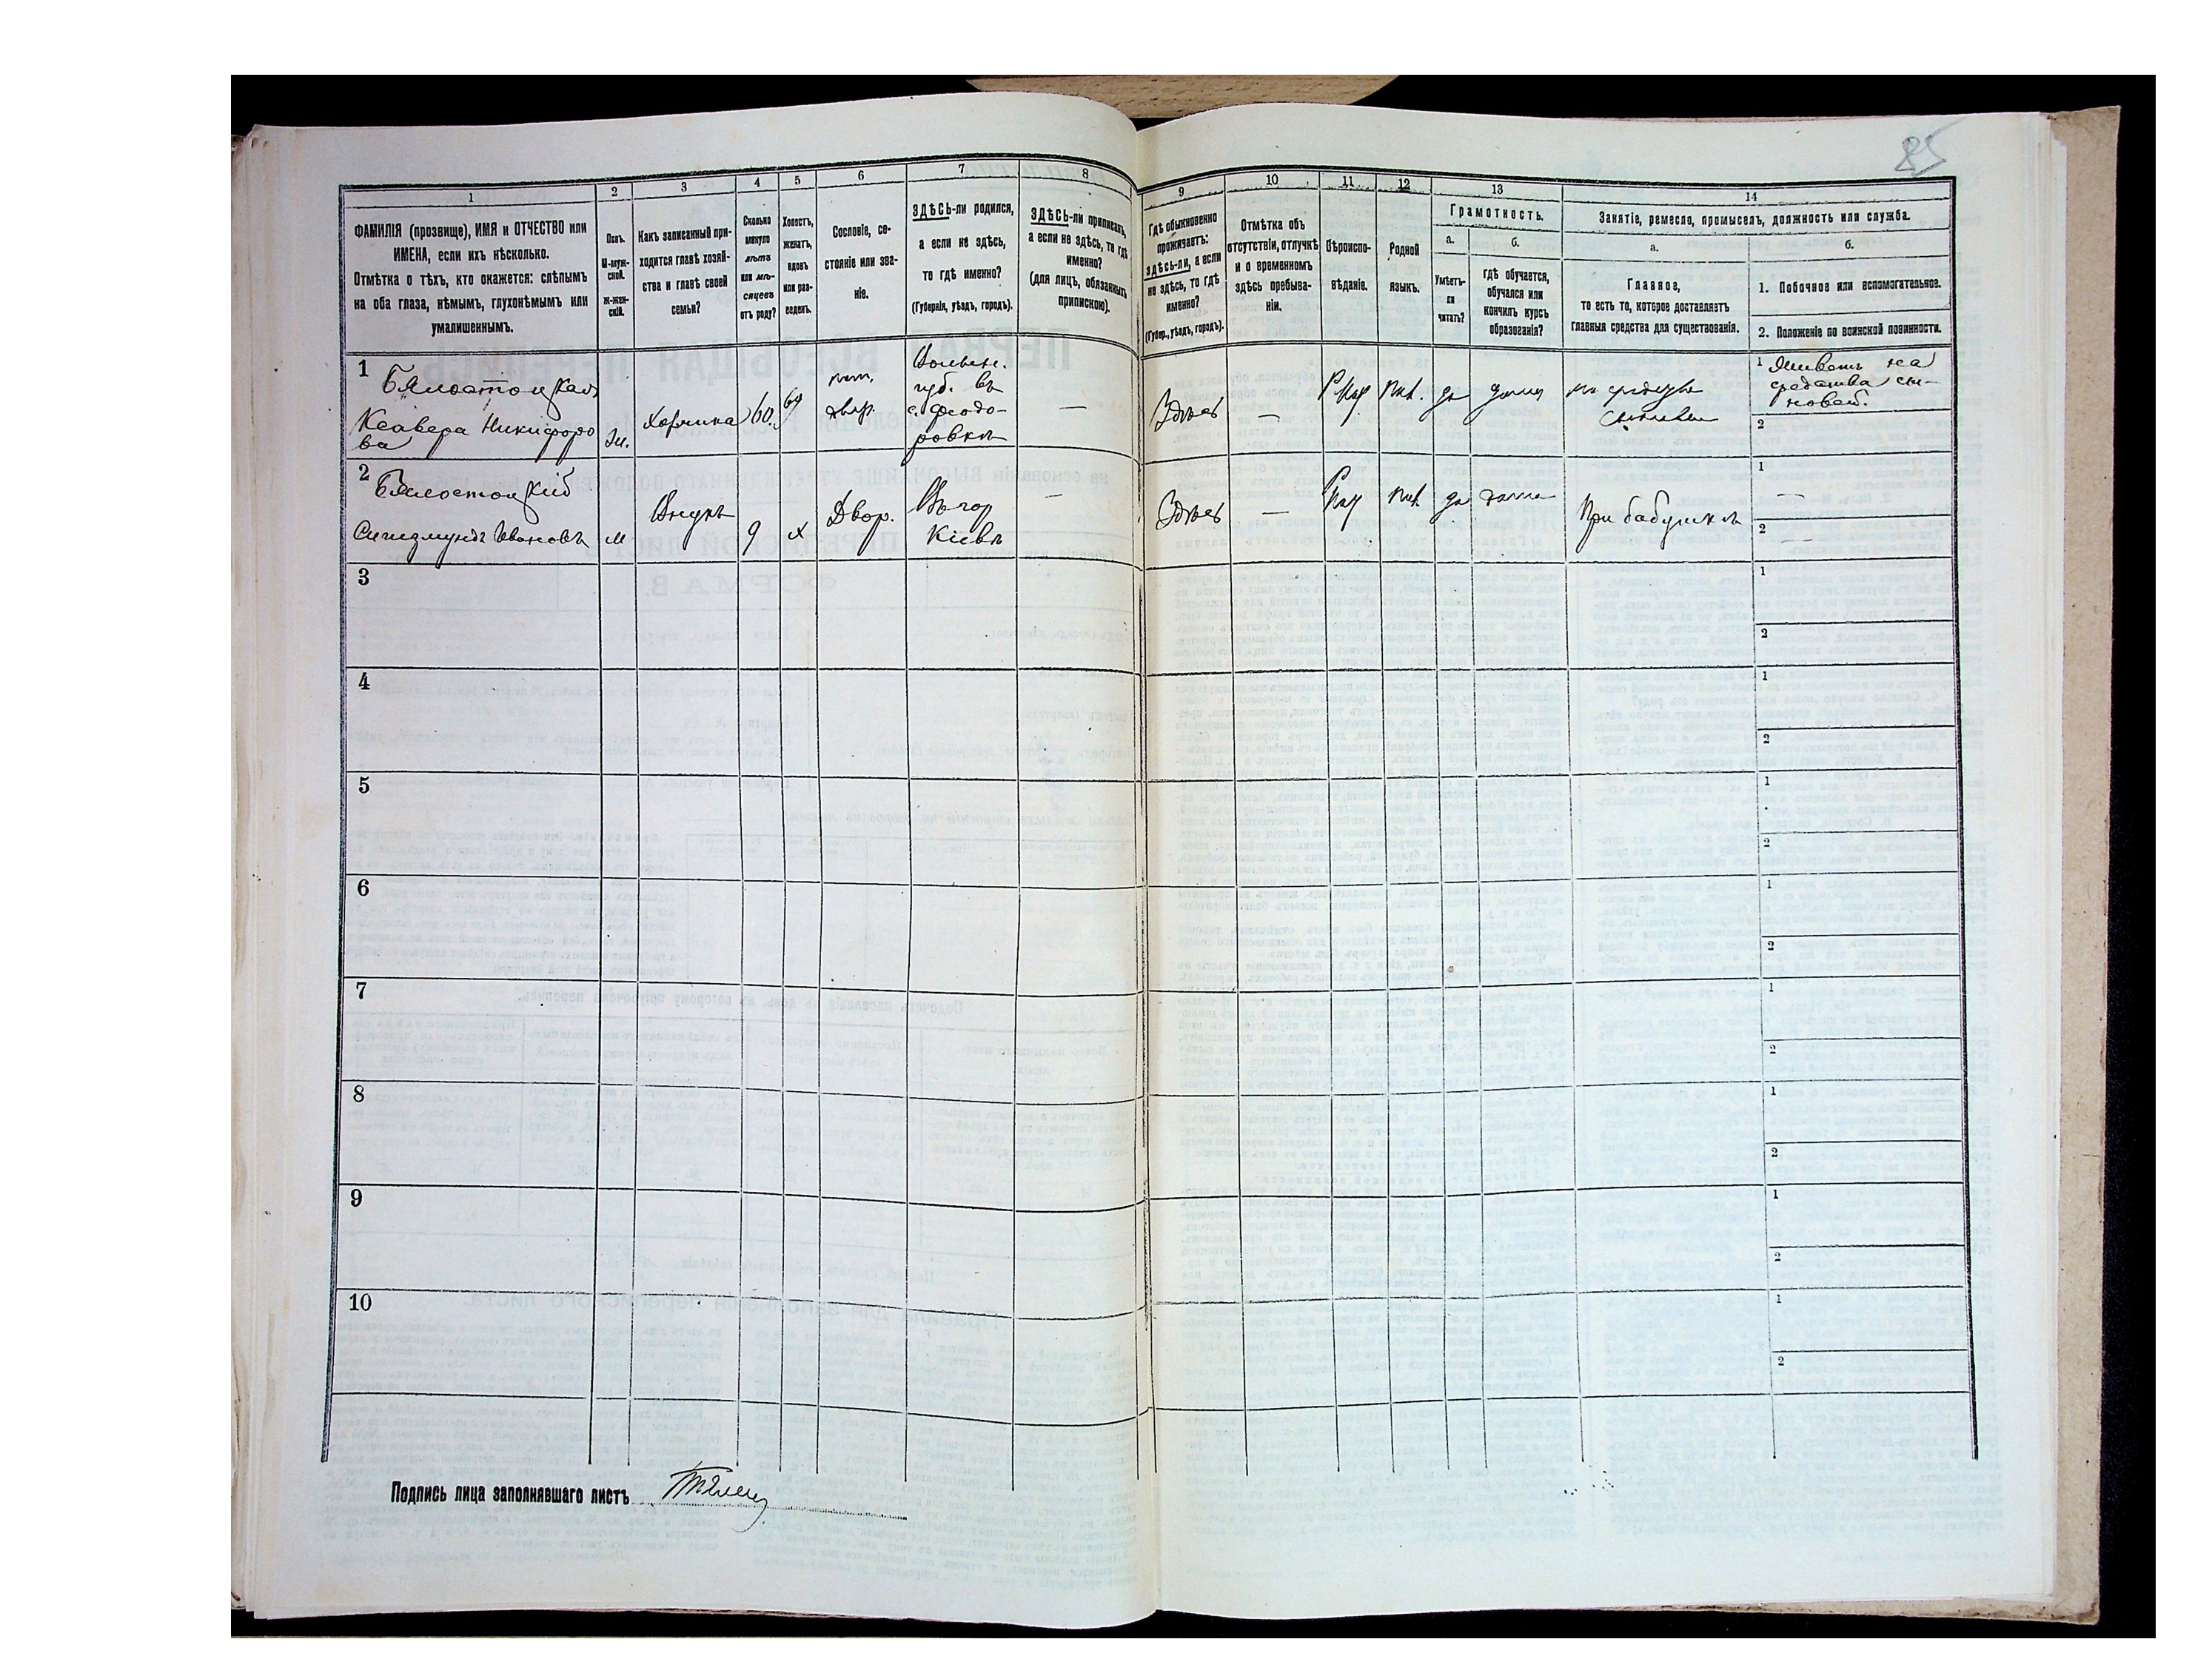 85
1
2
3
4
5
6
7
8
9
10
11
12
13
14
ФАМИЛІЯ (прозвище), ИМЯ и ОТЧЕСТВО или
ИМЕНА, если ихъ нѣсколько.
Отмѣтка о тѣхъ, кто окажется: слѣпымъ
на оба глаза, нѣмымъ, глухонѣмымъ или
умалишеннымъ.
Полъ.
М-муж-
ской.
Ж-жен-
скій.
Какъ записанный при-
ходится главѣ хозяй-
ства и главѣ своей
семьи?
Сколько
минуло
лѣтъ
или мѣ-
сяцевъ
отъ роду?
Холостъ,
женатъ,
вдовъ
или раз-
веденъ.
Сословіе, со-
стояніе или зва-
ніе.
ЗДѢСЬ-ли родился,
а если не здѣсь,
то гдѣ именно?
(Губернія, уѣздъ, городъ).
ЗДѢСЬ-ли приписанъ,
а если не здѣсь, то гдѣ
именно?
(для лицъ, обязанныхъ
припискою).
Гдѣ обыкновенно
проживаетъ:
здѣсь-ли, а если
не здѣсь, то гдѣ
именно?
(Губер., уѣздъ, городъ).
Отмѣтка объ
отсутствіи, отлучкѣ
и о временномъ
здѣсь пребыва-
ніи.
Вѣроиспо-
вѣданіе.
Родной
языкъ.
Грамотность.
а.
б.
Умѣетъ-
ли
читать?
гдѣ обучается,
обучался или
кончилъ курсъ
образованія?
Занятіе, ремесло, промыселъ, должность или служба.
а.
б.
Главное,
то есть то, которое доставляетъ
главныя средства для существованія.
1. Побочное или вспомогательное.
2. Положеніе по воинской повинности.
1
Бялостоцкая
Ксавера Никифоро
ва
Ж.
Хозяйка
60.
вд
двор.
Волын.
губ. въ
с. Федо-
ровкѣ
—
Здѣсь
—
Пол.
да
дома
1 Живетъ на
средства сы-
новей.
2
2
Бялостоцкій
Сигизмундъ Ивановъ
М
Внукъ
9
х
Двор.
Въ гор
Кіевѣ
—
Здѣсь
—
Пол.
да
дома
При бабушкѣ
1 —
2 —
3
1
2
4
1
2
5
1
2
6
1
2
7
1
2
8
1
2
9
1
2
10
1
2
Подпись лица заполнявшаго листъ